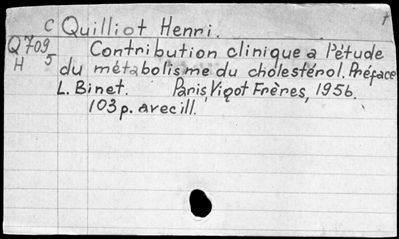 C Quilliot Henri.
Q709 Contribution clinique a l'étude
H 5 du métabolisme du cholestérol. Préface
L. Binet. Paris, Vigot Frères, 1956.
103p. avec ill.